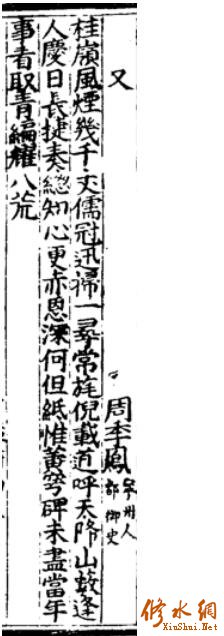 又 周季鳳 寧州人
都御史
桂嶺風煙幾千丈儒冠迅掃一尋常旄倪載道呼天降山逢
人慶日長捷奏總知心更赤恩深何但紙惟黃穹碑未盡當年
事看取青編耀八荒
修水网
XinShui.Net